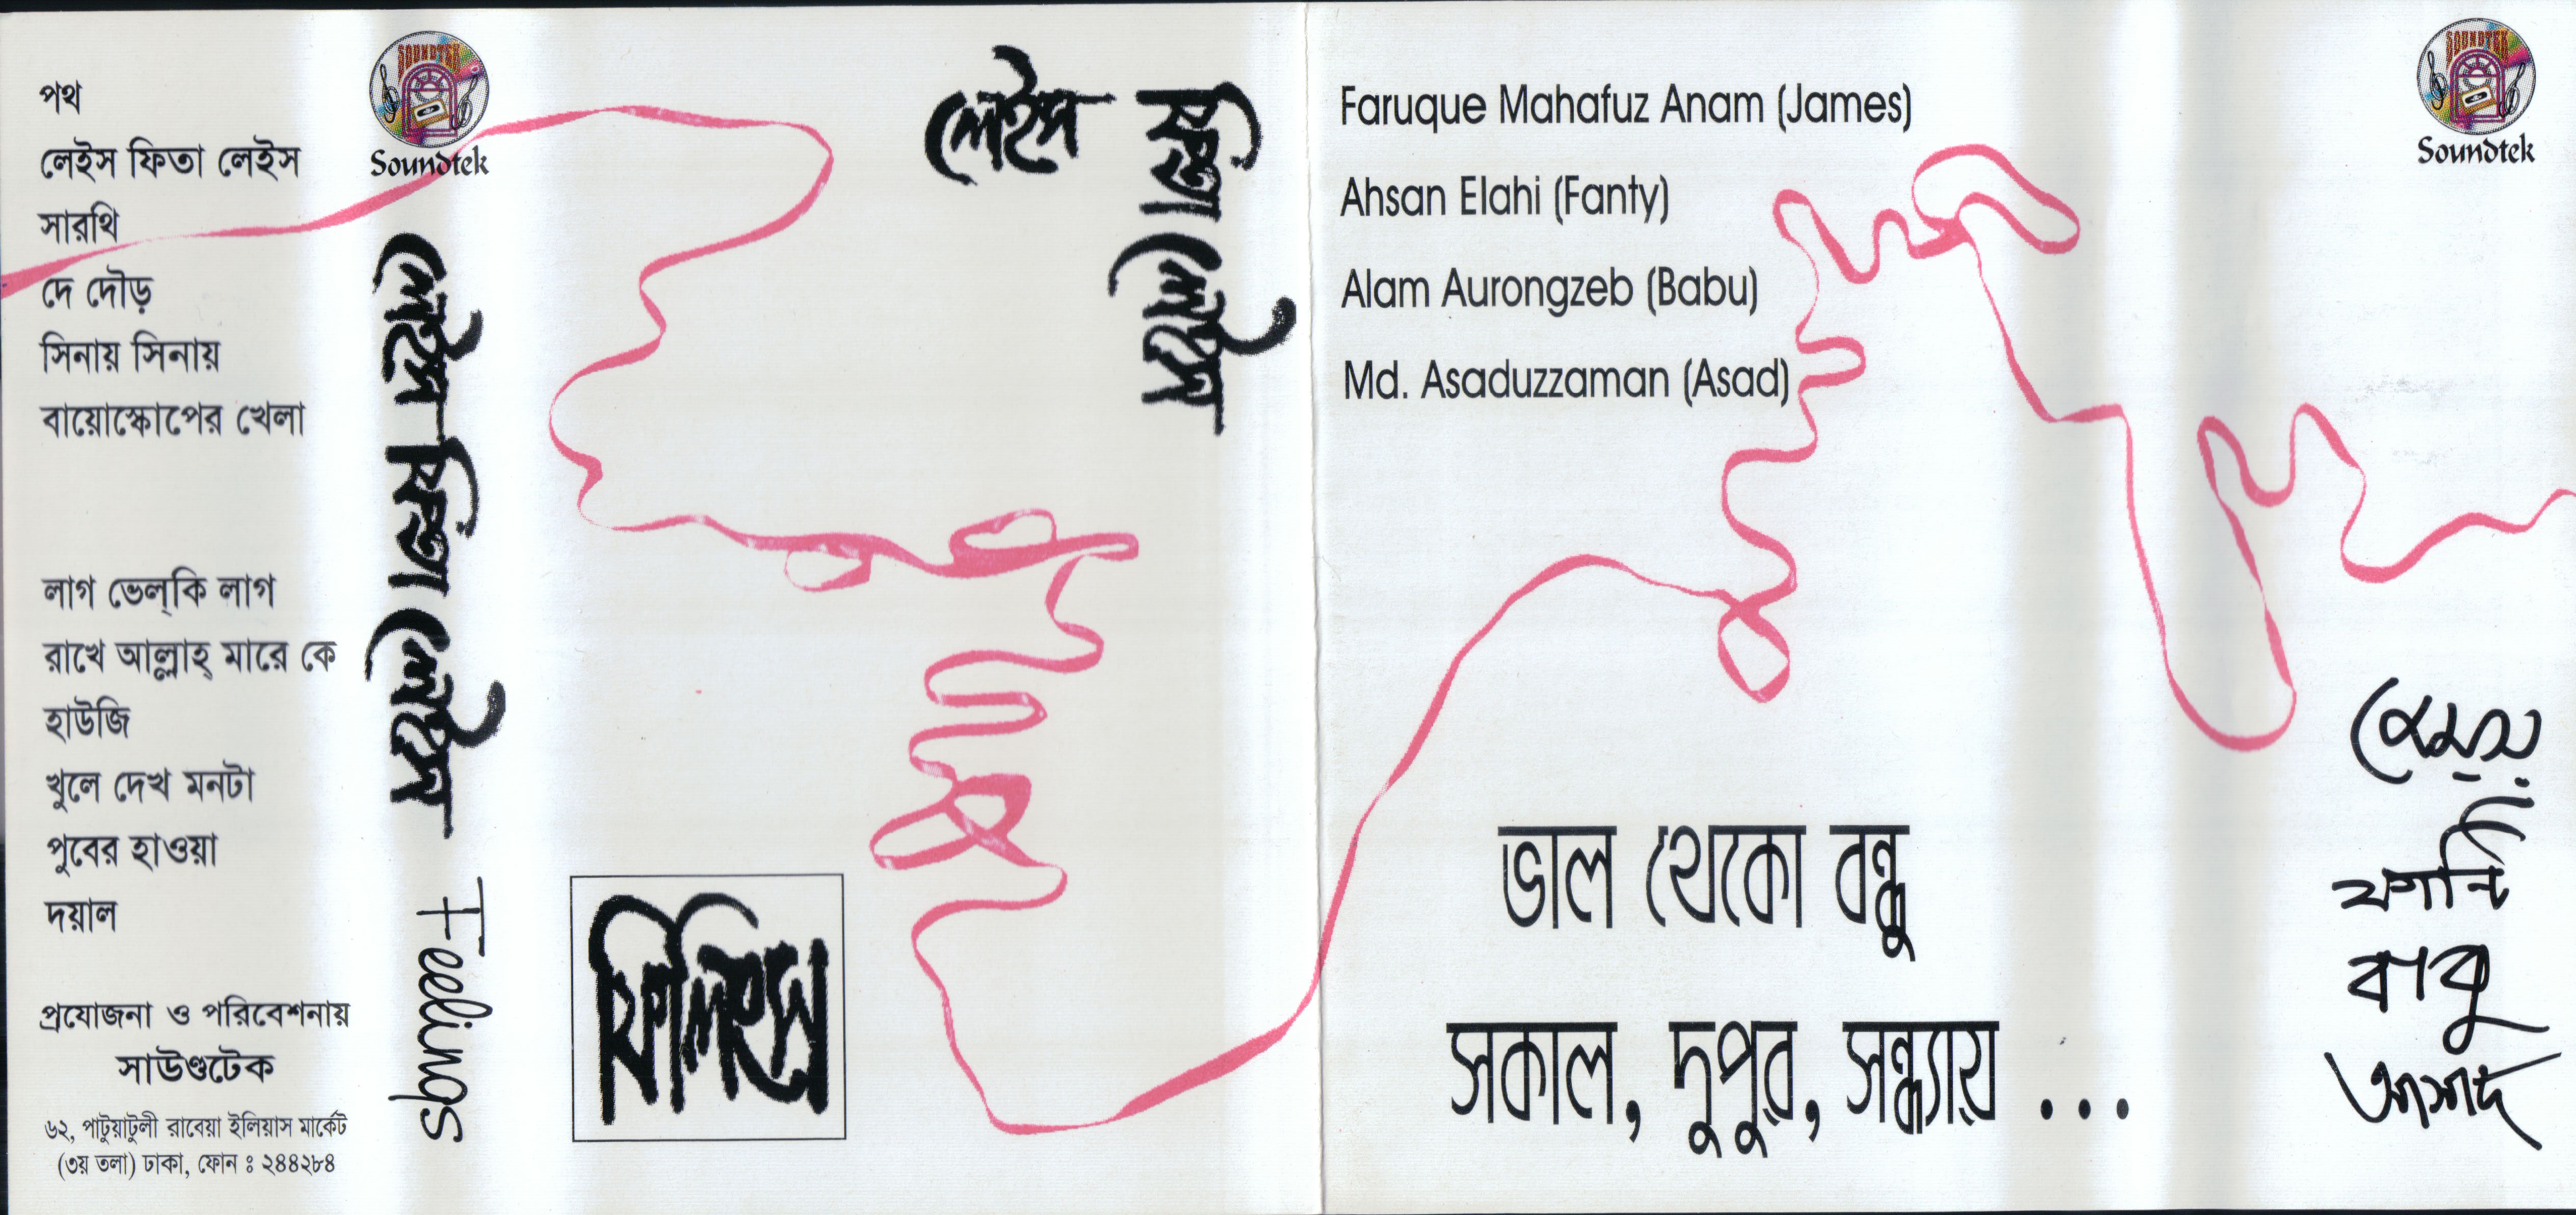 পথ
লেইস ফিতা লেইস
সারথি
দে দৌড়
সিনায় সিনায়
বায়োস্কোপের খেলা
লাগ ভেল্‌কি লাগ
রাখে আল্লাহ্‌ মারে কে
হাউজি
খুলে দেখ মনটা
পুবের হাওয়া
দয়াল
প্রযোজনা ও পরিবেশনায়
সাউণ্ডটেক
৬২, পাটুয়াটুলী রাবেয়া ইলিয়াস মার্কেট
(৩য় তলা) ঢাকা, ফোন ঃ ২৪৪২৮৪
SOUNDTEK
Soundtek
লেইস ফিতা লেইস
Feelings
লেইস
ফিতা লেইস
ফিলিংস
Faruque Mahafuz Anam (James)
Ahsan Elahi (Fanty)
Alam Aurongzeb (Babu)
Md. Asaduzzaman (Asad)
ভাল থেকো বন্ধু
সকাল, দুপুর, সন্ধ্যায় ...
SOUNDTEK
Soundtek
জেমস
ফান্টি
বাবু
আসাদ